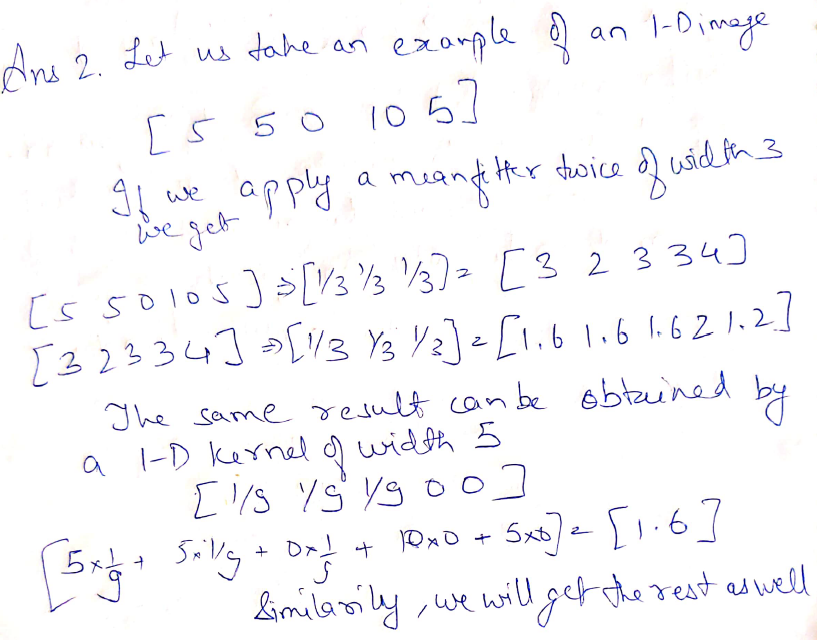 Ans 2. Let us take an example of an 1-D image
[5 5 0 10 5]
If we apply a mean filter twice of width 3
we get
[5 5 0 10 5] ⇒ [1/3 1/3 1/3] = [3 2 3 3 4]
[3 2 3 3 4] ⇒ [1/3 1/3 1/3] = [1.6 1.6 1.6 2 1.2]
The same result can be obtained by
a 1-D kernel of width 5
[1/9 1/9 1/9 0 0]
[5x1/9 + 5x1/9 + 0x1/9 + 10x0 + 5x0] = [1.6]
Similarily, we will get the rest as well